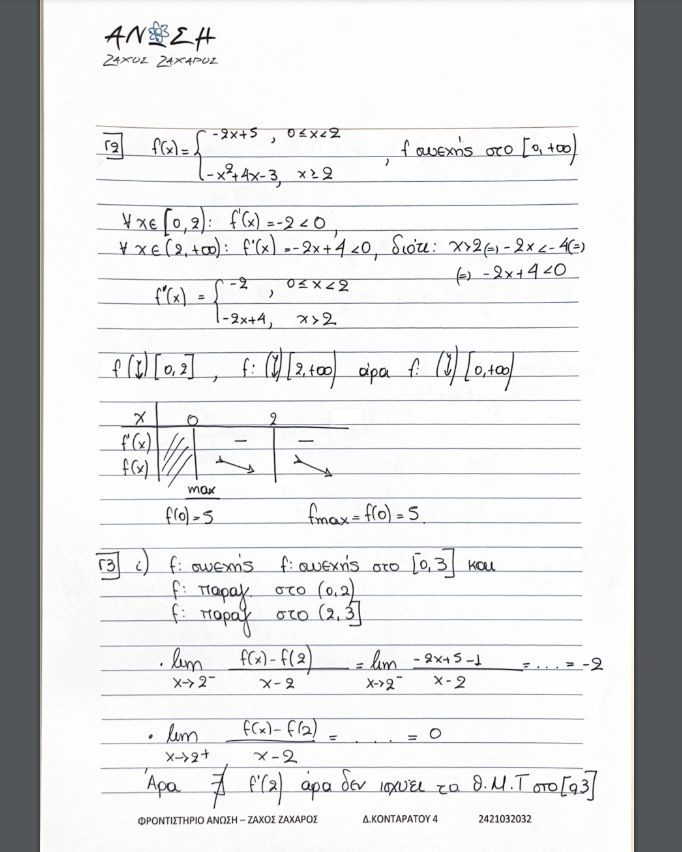 ΑΝΩΣΗ
ΖΑΧΟΣ ΖΑΧΑΡΟΣ
Γ2 f(x) = { -2x+5 , 0≤x<2
-x²+4x-3, x≥2 , f συνεχής στο [0,+∞)
∀x∈[0,2): f'(x) = -2 < 0,
∀x∈(2,+∞): f'(x) = -2x+4 <0, διότι: x>2 (=) -2x<-4 (=)
(=) -2x+4<0
f'(x) = { -2 , 0≤x<2
-2x+4, x>2
f (↓) [0,2] , f: (↓) [2,+∞) άρα f: (↓) [0,+∞)
x 0 2
f'(x) - -
f(x) ↘ ↘
max
f(0)=5 fmax = f(0) = 5.
Γ3 i) f: συνεχής f: συνεχής στο [0,3] και
f: παραγ. στο (0,2)
f: παραγ στο (2,3]
· lim x→2⁻ f(x)-f(2) / x-2 = lim x→2⁻ -2x+5-1 / x-2 = .... = -2
· lim x→2+ f(x)-f(2) / x-2 = ..... = 0
Άρα ∄ f'(2) άρα δεν ισχύει το Θ.Μ.Τ στο [0,3]
ΦΡΟΝΤΙΣΤΗΡΙΟ ΑΝΩΣΗ – ΖΑΧΟΣ ΖΑΧΑΡΟΣ Δ.ΚΟΝΤΑΡΑΤΟΥ 4 2421032032